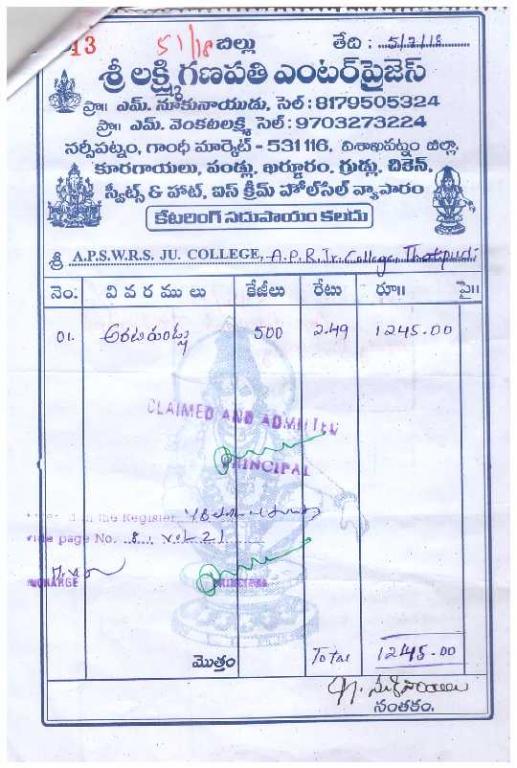 13 51/18 బిల్లు తేది : 5/2/18
శ్రీ లక్ష్మి గణపతి ఎంటర్‌ప్రైజెస్
ప్రొ॥ ఎమ్. నూకునాయుడు, సెల్ : 8179505324
ప్రొ॥ ఎమ్. వెంకటలక్ష్మి సెల్ : 9703273224
నర్సీపట్నం, గాంధీ మార్కెట్ - 531116, విశాఖపట్నం జిల్లా,
కూరగాయలు, పండ్లు, ఖర్జూరం, గ్రుడ్లు, చికెన్,
స్వీట్స్ & హాట్, ఐస్ క్రీమ్ హోల్‌సేల్ వ్యాపారం
కేటరింగ్ సదుపాయం కలదు
శ్రీ A.P.S.W.R.S. JU. COLLEGE, A.P.R.Jr.College, Thatipudi
నెం. వివరములు కేజీలు రేటు రూ॥ పై॥
01. అరటిపండ్లు 500 2.49 1245.00
CLAIMED AND ADMITTED
PRINCIPAL
in the Register
page No. 8, vol 21
PRINCIPAL
మొత్తం Total 1245.00
సంతకం.